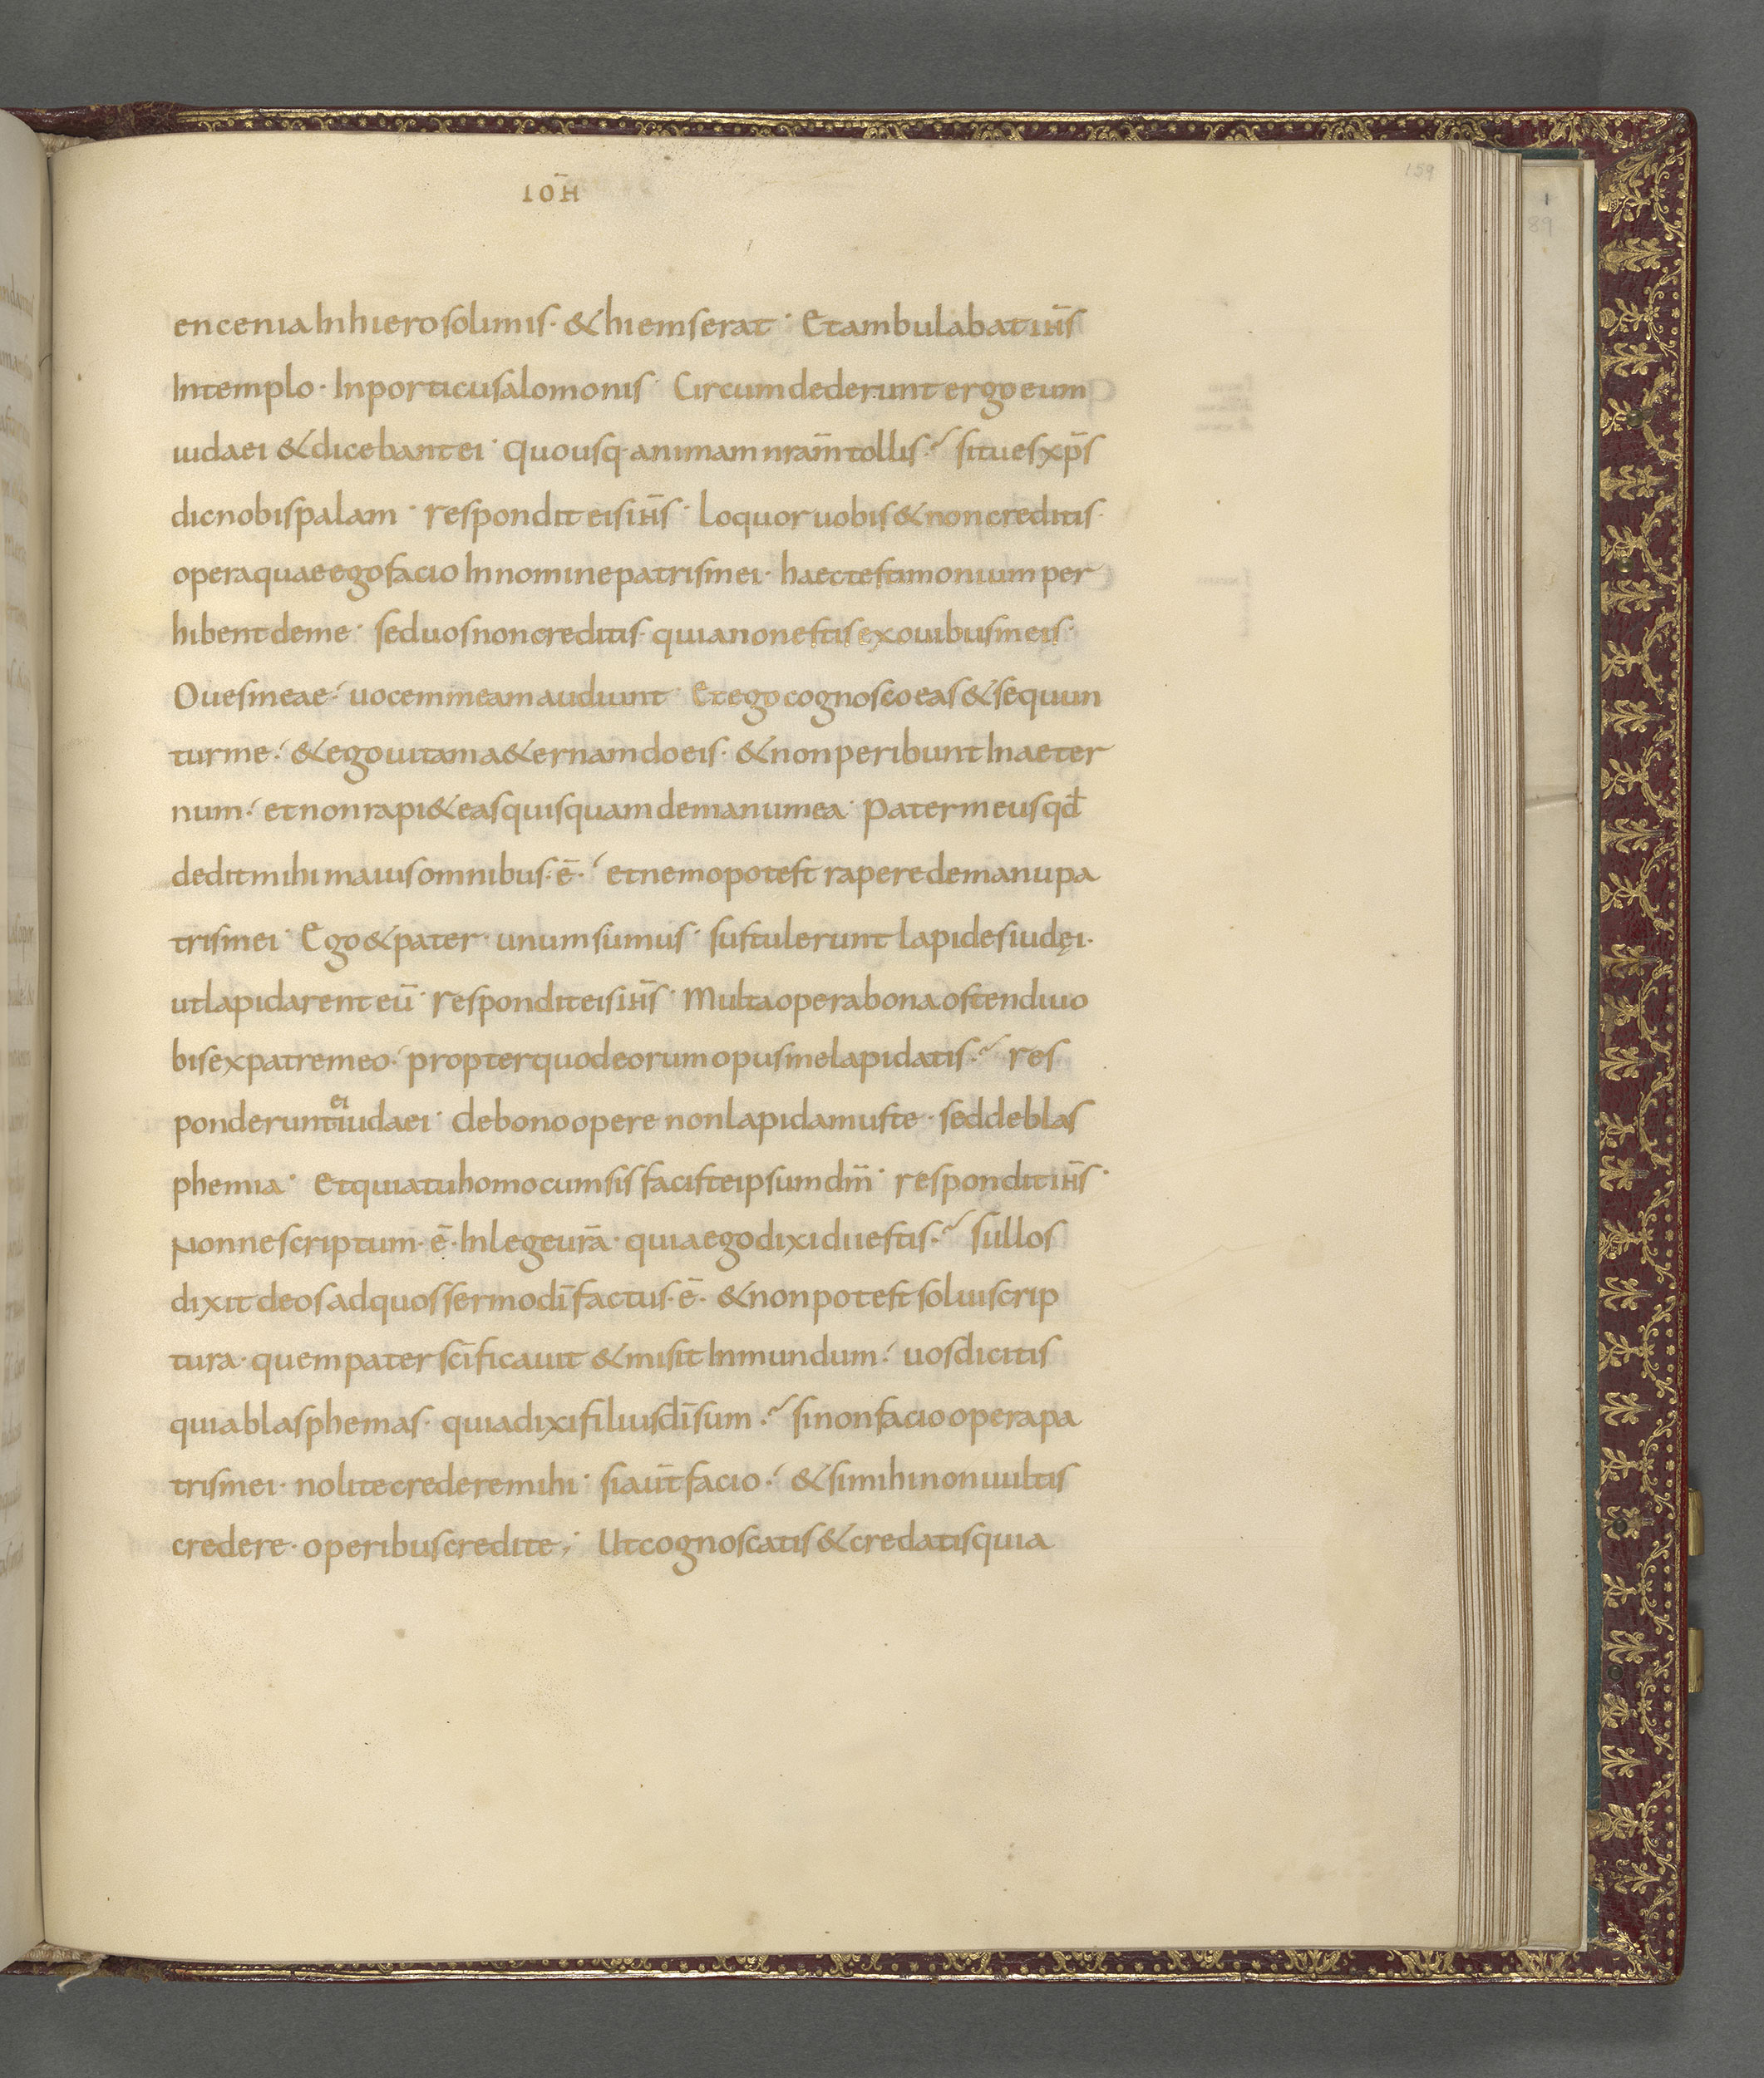 IOH̄
159
1
89
encenia Inhierosolimis· &hiemserat· Etambulabat ih̄s
Intemplo· Inporticusalomonis· Circumdederunt ergo eum
iudaei &dicebant ei· Quousq· animam nr̄am tollis·́ situes xp̄s
dicnobispalam· respondit eis ih̄s· loquor uobis & noncreditis·
operaquae ego facio Innomine patrismei· haec testimonium per
hibent deme· seduosnoncreditis· quia nonestis ex ouibusmeis·
Ouesmeae·́ uocem meam audiunt· Et ego cognosco eas & sequun
turme·́ & ego uitam a&ernam do eis· & nonperibunt Inaeter
num·́ et non rapi& eas quisquam demanumea· Pater meus qđ
dedit mihi maius omnibus· ē·́ et nemo potest rapere demanu pa
trismei· Ego & pater· unum sumus· sustulerunt lapides iudęi·
ut lapidarent eū· respondit eis ih̄s· Multa opera bona ostendi uo
bis expatre meo·́ propter quod eorum opus me lapidatis·́ res
ponderunt ei iudaei· debono opere nonlapidamus te· sed deblas
phemia· Et quia tu homo cum sis facis te ipsum dm̄· respondit ih̄s·
Nonne scriptum· ē· In lege ur̄a· quia ego dixi dii estis·́ si illos
dixit deos ad quos sermo dī factus· ē· & nonpotest solui scrip
tura· quem pater sc̄ificauit & misit Inmundum·́ uos dicitis
quia blasphemas· quia dixi filius dī sum·́ si non facio opera pa
trismei· nolite credere mihi· si aūt facio·́ & si mihi non uultis
credere· operibus credite; Ut cognoscatis & credatis quia